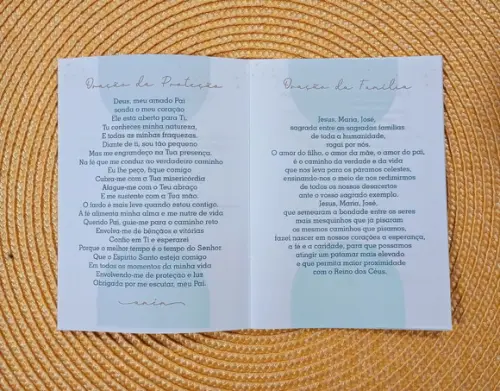 Oração da Proteção
Deus, meu amado Pai
sonda o meu coração
Ele está aberto para Ti,
Tu conheces minha natureza,
E todas as minhas fraquezas.
Diante de ti, sou tão pequeno
Mas me engrandeço na Tua presença,
Na fé que me conduz ao verdadeiro caminho
Eu lhe peço, fique comigo
Cubra-me com a Tua misericórdia
Afague-me com o Teu abraço
E me sustente com a Tua mão.
O fardo é mais leve quando estou contigo.
A fé alimenta minha alma e me nutre de vida
Querido Pai, guie-me para o caminho reto
Envolva-me de bênçãos e vitórias
Confio em Ti e esperarei
Porque o melhor tempo é o tempo do Senhor.
Que o Espírito Santo esteja comigo
Em todos os momentos da minha vida
Envolvendo-me de proteção e luz
Obrigado por me escutar, meu Pai.
Oração da Família
Jesus, Maria, José,
sagrada entre as sagradas famílias
de toda a humanidade,
rogai por nós.
O amor do filho, o amor da mãe, o amor do pai,
é o caminho da verdade e da vida
que nos leva para os páramos celestes,
ensinando-nos o meio de nos redimirmos
de todos os nossos desacertos
ante o vosso sagrado exemplo.
Jesus, Maria, José,
que semearam a bondade entre os seres
mais mesquinhos que já pisaram
os mesmos caminhos que pisamos,
fazei nascer em nossos corações a esperança,
a fé e a caridade, para que possamos
atingir um patamar mais elevado
e que permita maior proximidade
com o Reino dos Céus.